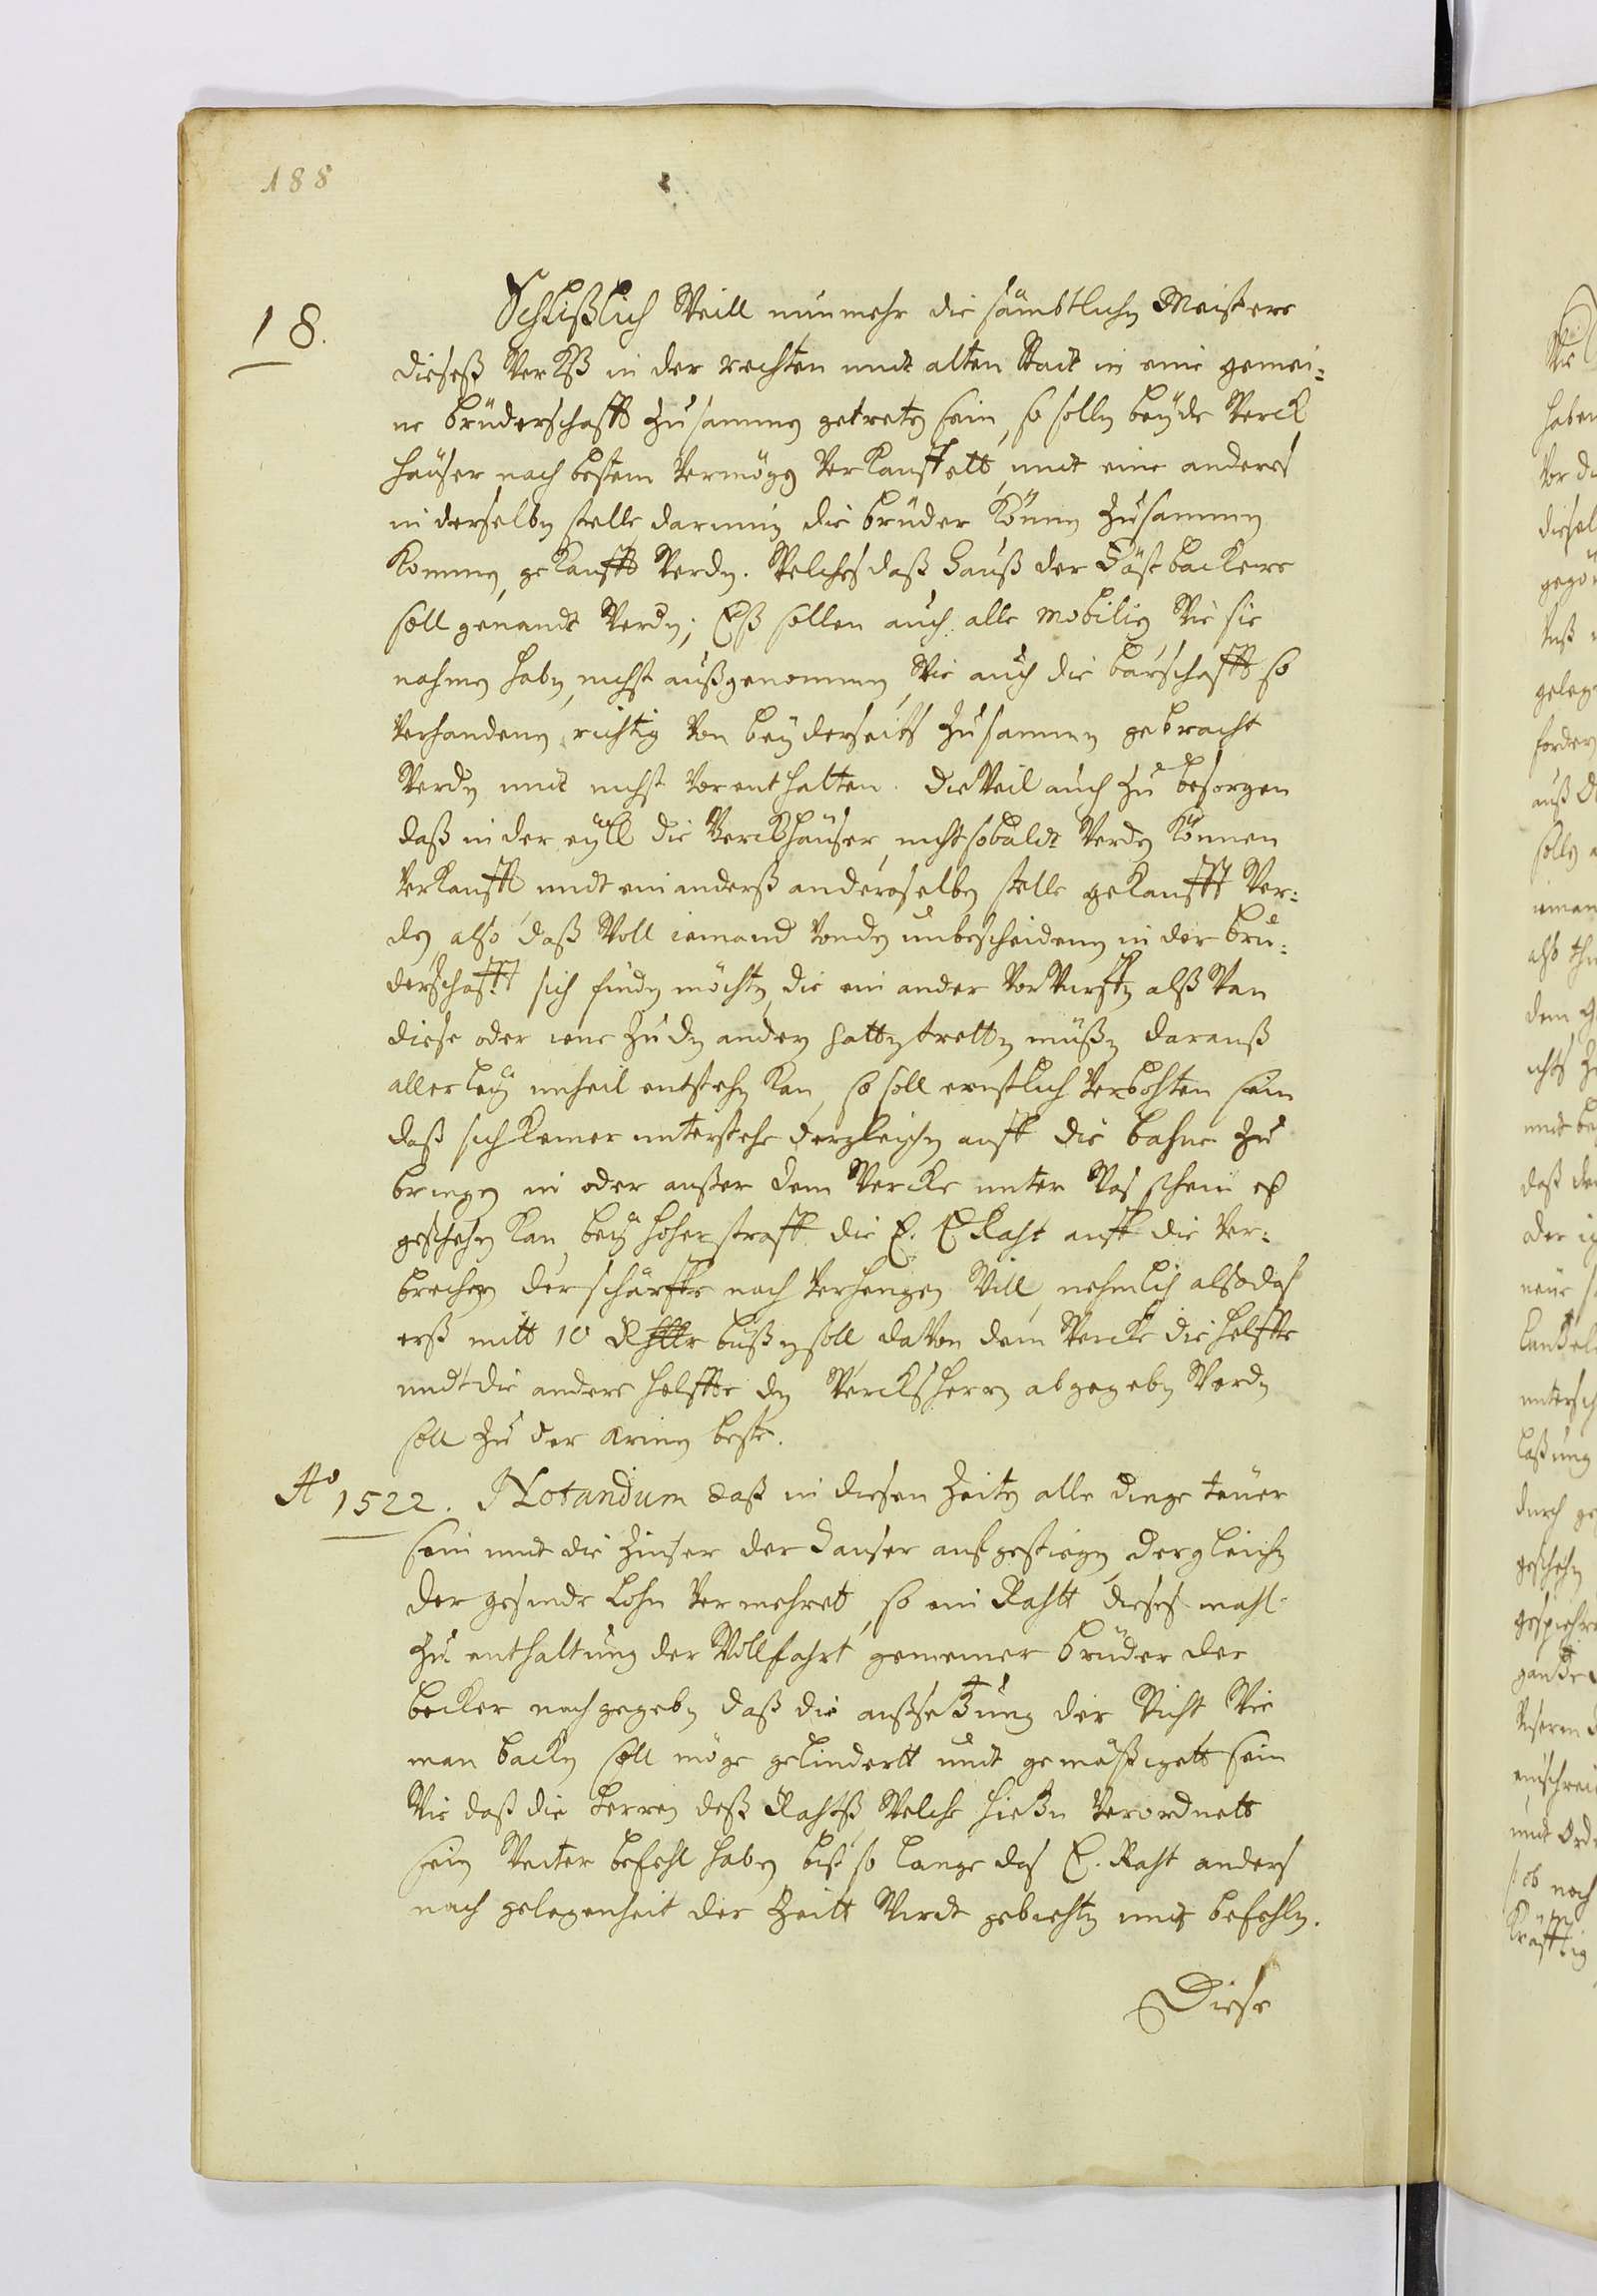 188
18.
Schlißlich Weill nunmehr die sämbtlichn Meistere
dieseß Werkß in der rechten undt alten Stadt in eine gemei:
ne brüderschafft zusammen getretn sein, so solln beyde Werck
häuser nach bestem Vermögn Verkaufft ett undt eine anderes
in derselbn stelle darinnn die brüder Könnn zusammen
Kommn, gekaufft Werdn. Welches daß Hauß der Fästbackere
soll genandt Werdn; Eß sollen auch alle mobilien Wie sie
nahmn habn, nichst außgenommen, Wie auch die barschafft so
Verhandenn, richtig Von beyderseits zusammen gebracht
Werdn undt nichst Vorenthalten. dieWeil auch zu besorgen
daß in der eyll die Werckhäuser, nicht sobaldt Werdn Können
Verkaufft undt ein anderß an deroselbn stelle gekaufft Wer:
dn also daß Woll iemand Vondn unbescheidenn in der brü:
derschafft sich findn möchtn, die ein ander VorWurffn alß Wan
diese oder iene zu dn andern hattn trettn müßn darauß
allerley unheil entstehn Kan, so soll ernstlich Verbohten sein
daß sich Keiner unterstehe dergleichn auff die bahne zu
bringn in oder außer dem Wercke unter Was schein eß
geschehn Kan, bey hoher straff die E. E Raht auff die Ver:
brecher der schärffe nach Verhengen Will, nehmlich also daß
erß mitt 10 Rthlr bußn soll daVon dem Wercke die helffte
undt die andere helffte dn Wercksherrn abgegebn Werdn
soll zu der armn beste.
Aō 1522. Notandum daß in diesen Zeitn alle dinge teüer
sein undt die Zinser der Hauser aufgestiegn dergleichn
der gesinde Lohn Vermehret, so ein Rahtt dieses mahl
zu enthaltung der Wollfahrt gemeiner brüder der
becker nachgegebn daß die außseßung der Wicht Wie
man backn soll möge gelindertt undt gemäßigett sein
Wie daß die Herren deß Rahtß Welche hiezu Verordnett
sein Weiter befehl haben biß so lange das E. Raht anders
nach gelegenheit der Zeitt Wirdt gebiehtn undt befehln.
Diese